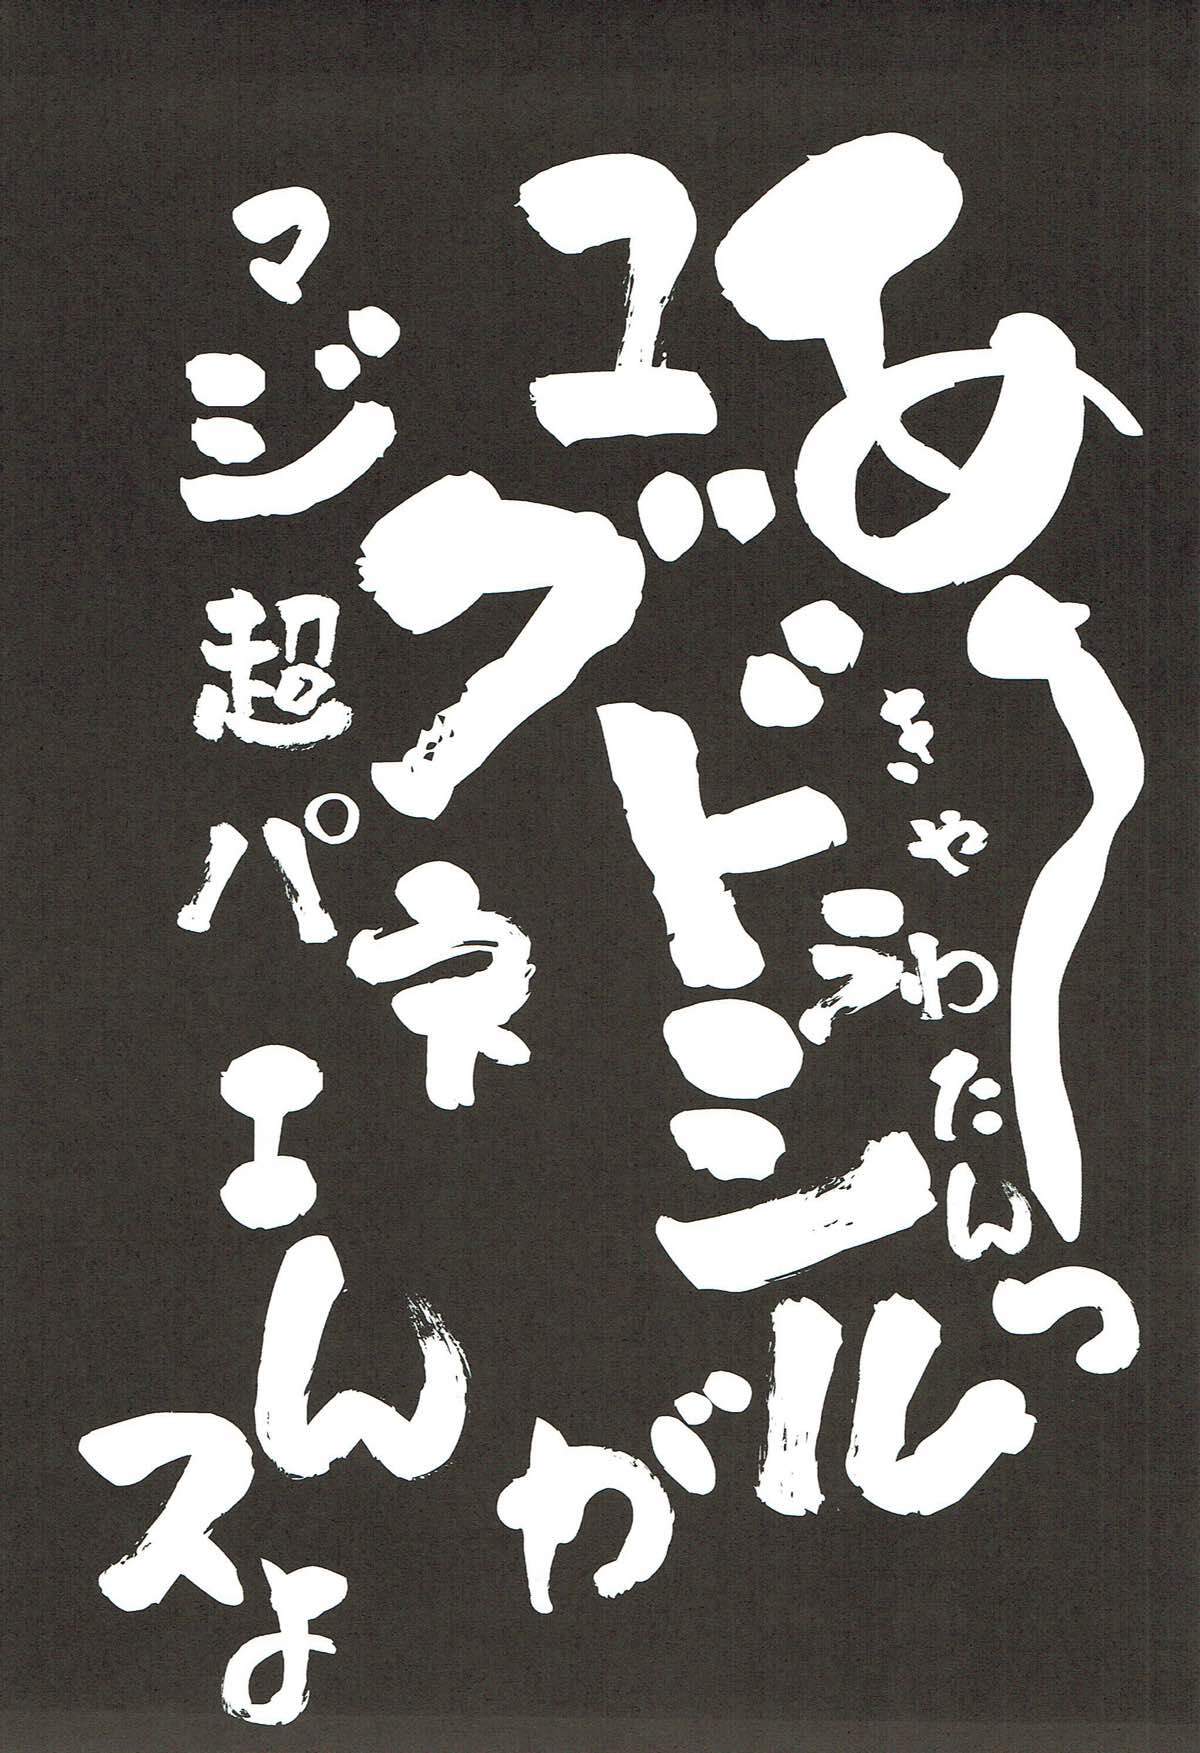 あ～っ
きゃわたん
ユグドラシルが
マジ超パネエんスよ